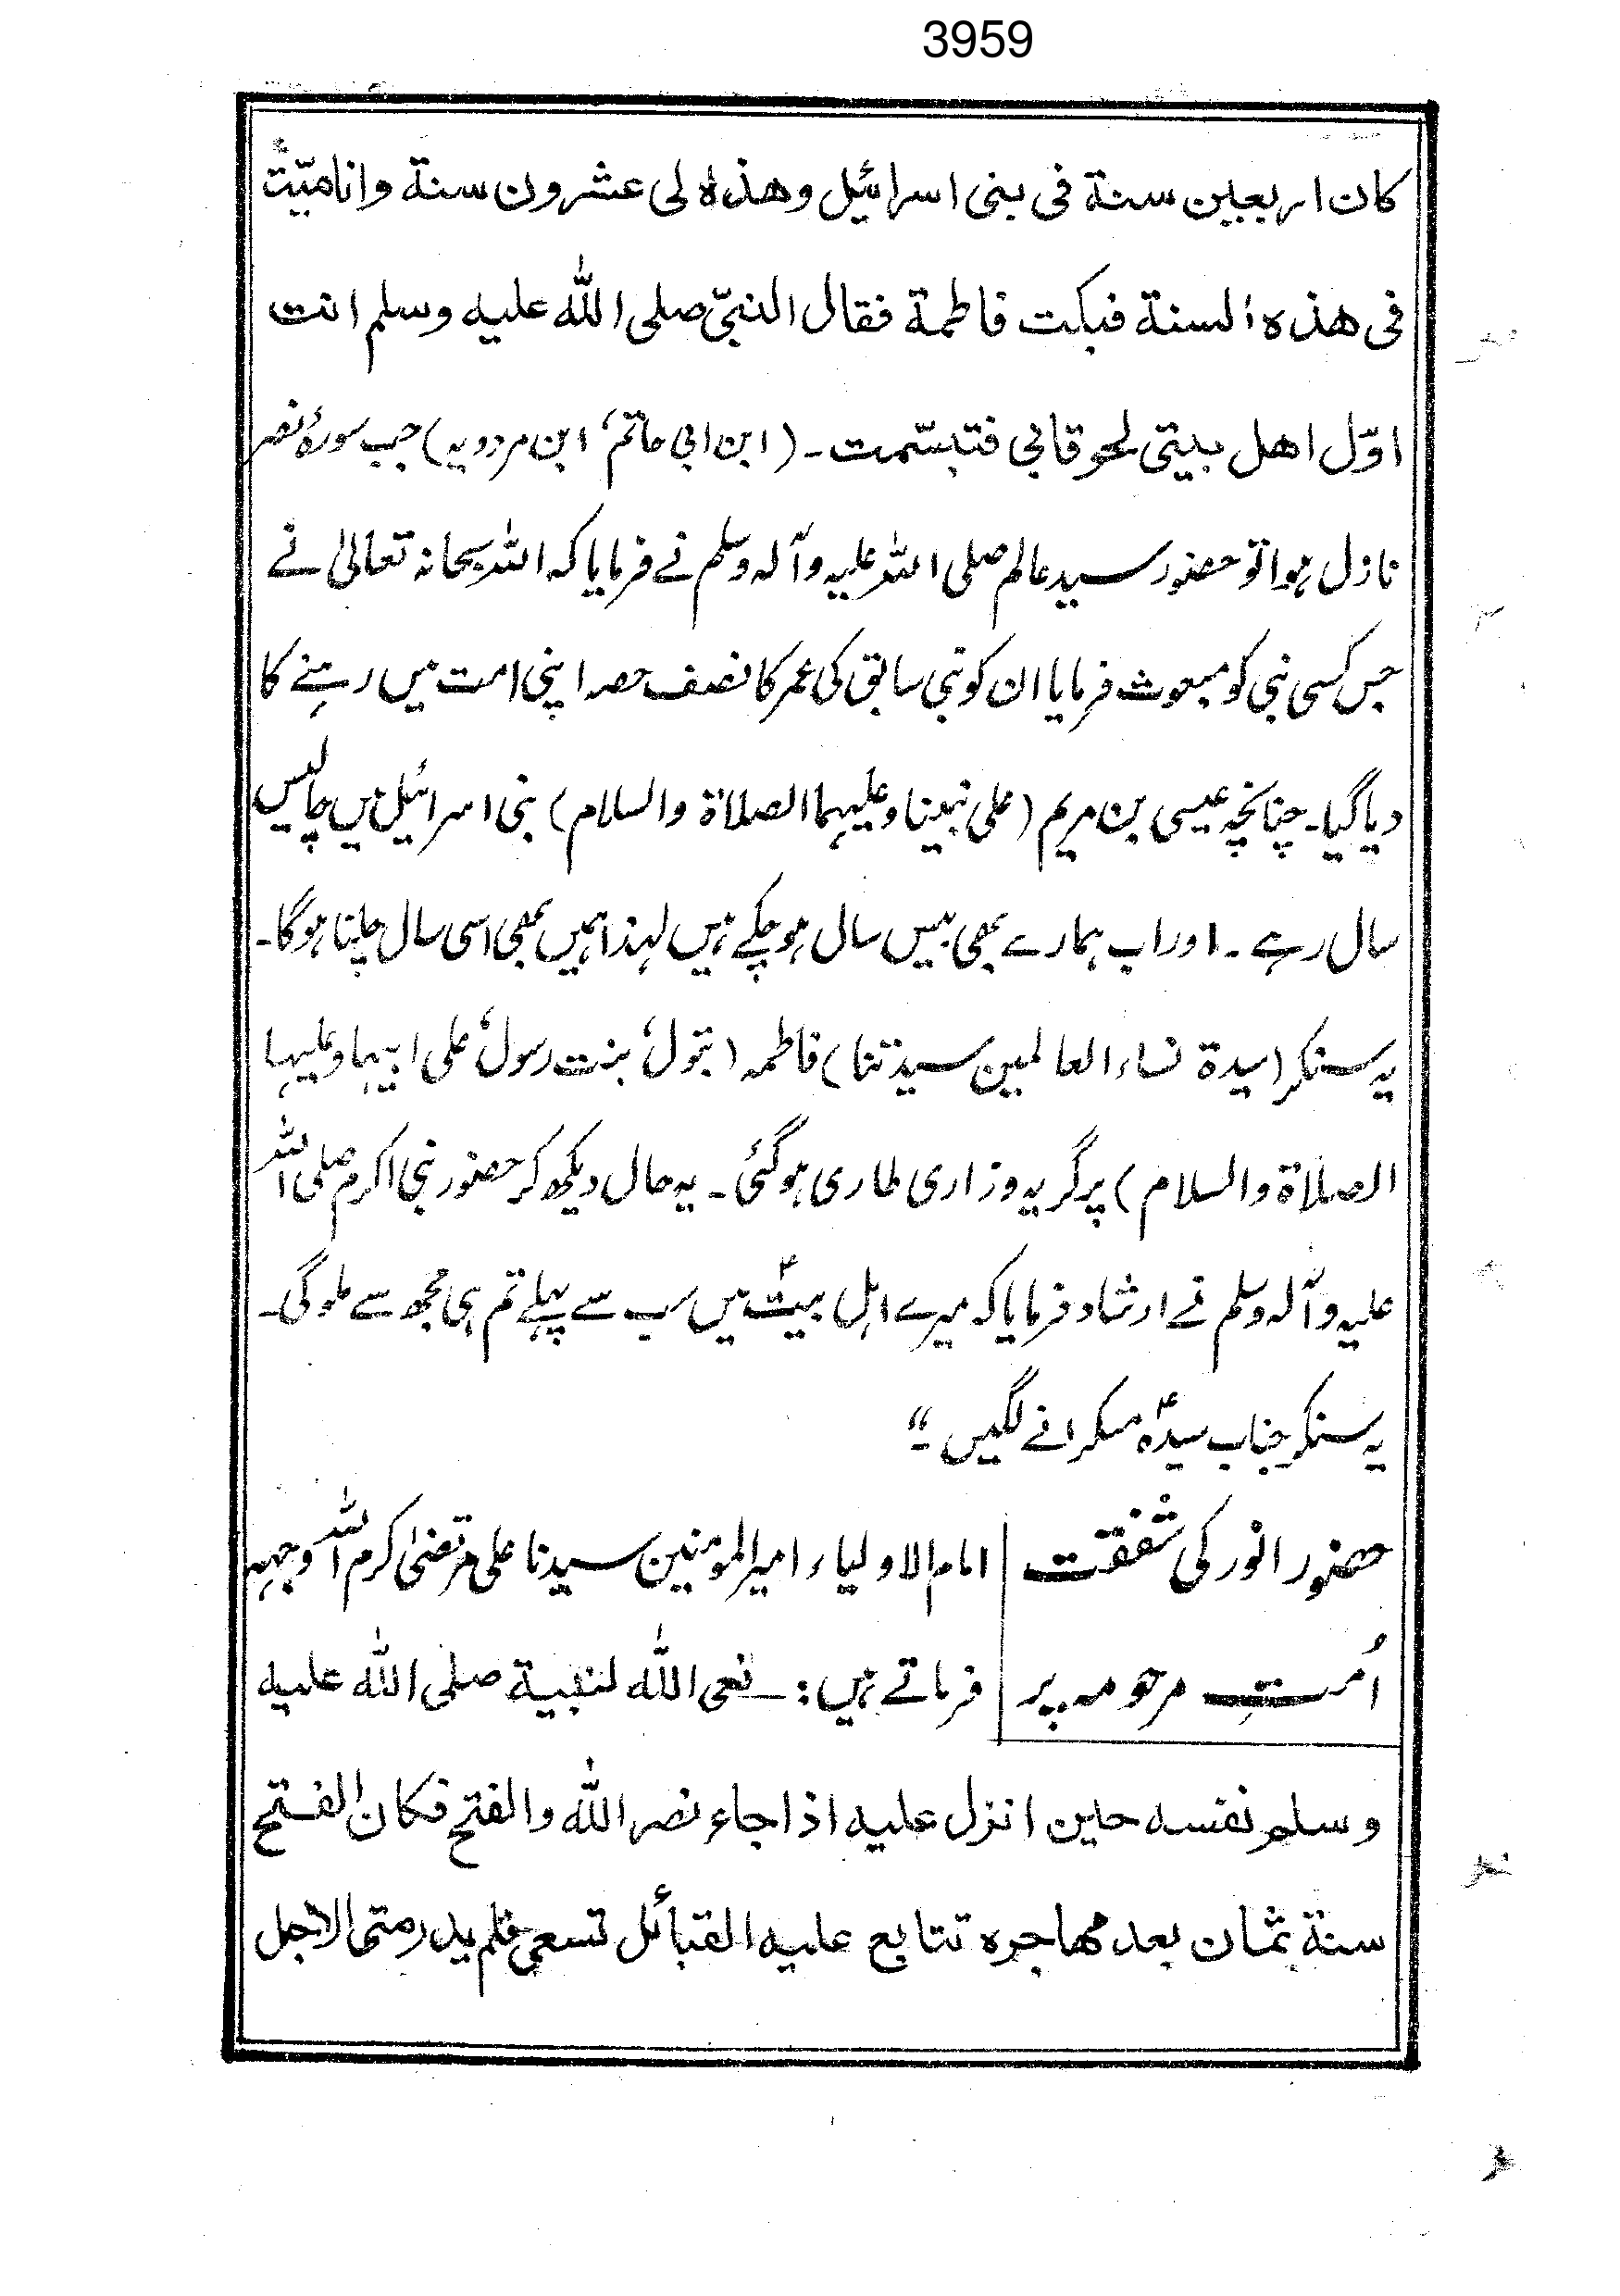 3959
كان اربعين سنة فى بنى اسرائيل وهذه لى عشرون سنة وانا ميّتٌ
فى هذه السنة فبكت فاطمة فقال النبىّ صلى الله عليه وسلم انت
اوّل اهل بيتى لحوقابى فتبسّمت۔ (ابن ابی حاتم، ابن مردویہ) جب سورۂ نصر
نازل ہوا تو حضور سید عالم صلی اللہ علیہ وآلہ وسلم نے فرمایا کہ اللہ سبحانہ تعالیٰ نے
جس کسی نبی کو مبعوث فرمایا ان کو نبی سابق کی عمر کا نصف حصہ اپنی امت میں رہنے کا
دیا گیا۔ چنانچہ عیسی بن مریم (علی نبینا وعلیہما الصلاۃ والسلام) بنی اسرائیل میں چالیس
سال رہے۔ اور اب ہمارے بھی بیس سال ہو چکے ہیں لہذا ہمیں بھی اسی سال چلنا ہوگا۔
یہ سنکر (سیدۃ نساء العالمین سیدتنا) فاطمہ (بتول، بنت رسول، علی ابیہا وعلیہا
الصلاۃ والسلام) پر گریہ وزاری طاری ہوگئی۔ یہ حال دیکھ کر حضور نبی اکرم صلی اللہ
علیہ وآلہ وسلم نے ارشاد فرمایا کہ میرے اہل بیتؑ میں سب سے پہلے تم ہی مجھ سے ملو گی۔
یہ سنکر جناب سیدہؑ مسکرانے لگیں۔“
حضور انور کی شفقت امام الاولیاء امیر المومنین سیدنا علی مرتضیٰ کرم اللہ وجہہ
اُمتِ مرحومہ پر فرماتے ہیں:۔ نعى الله لنبية صلى الله عليه
وسلم نفسه حين انزل عليه اذا جاء نصر الله والفتح فكان الفتح
سنة ثمان بعد مهاجره تتابع عليه القبائل تسعى فلم يدر متى الاجل